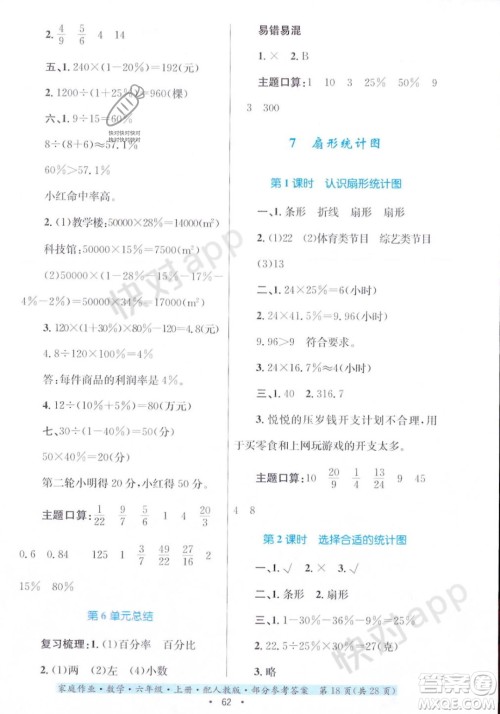 2. 4/9 5/6 4 14
五、1. 240×(1-20%)=192(元)
2. 1200÷(1+25%)=960(棵)
六、1. 9÷15=60%
8÷(8+6)≈57.1%
60%>57.1%
小红命中率高。
2. (1)教学楼:50000×28%=14000(m²)
科技馆:50000×34%=17000(m²)
(2)50000×(1-28%-34%-17%-4%-2%-4%-2%)=
3. 120×(1+30%)×80%=124.8(元)
4.8÷120=4%
答:每件商品的利润率是4%。
4. 100÷(1-50%)=200(分)
200×(1-50%-40%)=20(分)
第二轮小明得20分。
主题口算: 1/22 9/50 7/16
0.6 0.84 125 31/49 1/6 2
15% 80%
第6单元总结
复习梳理:1. (1)百分率 百分比
(2)两 (4)左 (4)小数
易错易混
1. × 2. B
主题口算: 1 10 3 25% 50% 9
3 300
7 扇形统计图
第1课时 认识扇形统计图
一、1. 条形 折线 扇形 扇形
2. (1)22 (2)体育类节目 综艺类节目
(3)13
二、1. 24×25%=6(小时)
2. 24×41.5%=9.96(小时)
9.96>9 符合要求。
3. 24×≈4%≈1(小时)
三、1. 40 2. 316.7
3. 悦悦的压岁钱开支计划不合理,用于买零食和上网玩游戏的开支太多。
主题口算: 10 20/9 1/4 13/24 9 45
4 8
第2课时 选择合适的统计图
一、1. √ 2. × 3. √
二、1. 1-30%-36%-9%=25%
2. 1-25%-16%-30%=29%
3. 略
家庭作业·数学·六年级·上册·配人教版·部分参考答案 第18页(共28页)
62
快对app
快对app
快对app